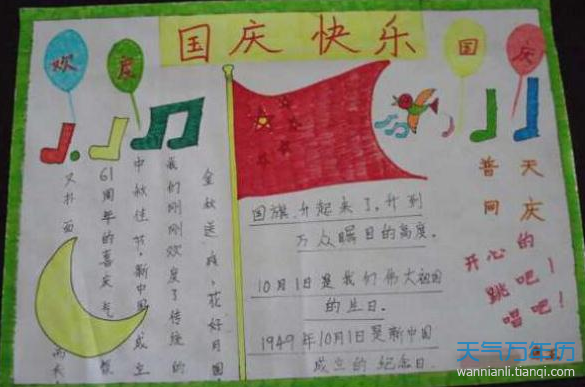 国庆 快乐
欢度
国庆
金秋送爽，花好月圆
我们刚刚欢度了传统的
中秋佳节，新中国成立
61周年的喜庆气
又扑面
国旗，升起来了。升到
万众瞩目的高度。
10月1日是我们伟大祖国
的生日.
1949年10月1日是新中国
成立的纪念日.
普天
同庆
开心的
跳吧！
唱吧！
天气万年历
wannianli.tianqi.com